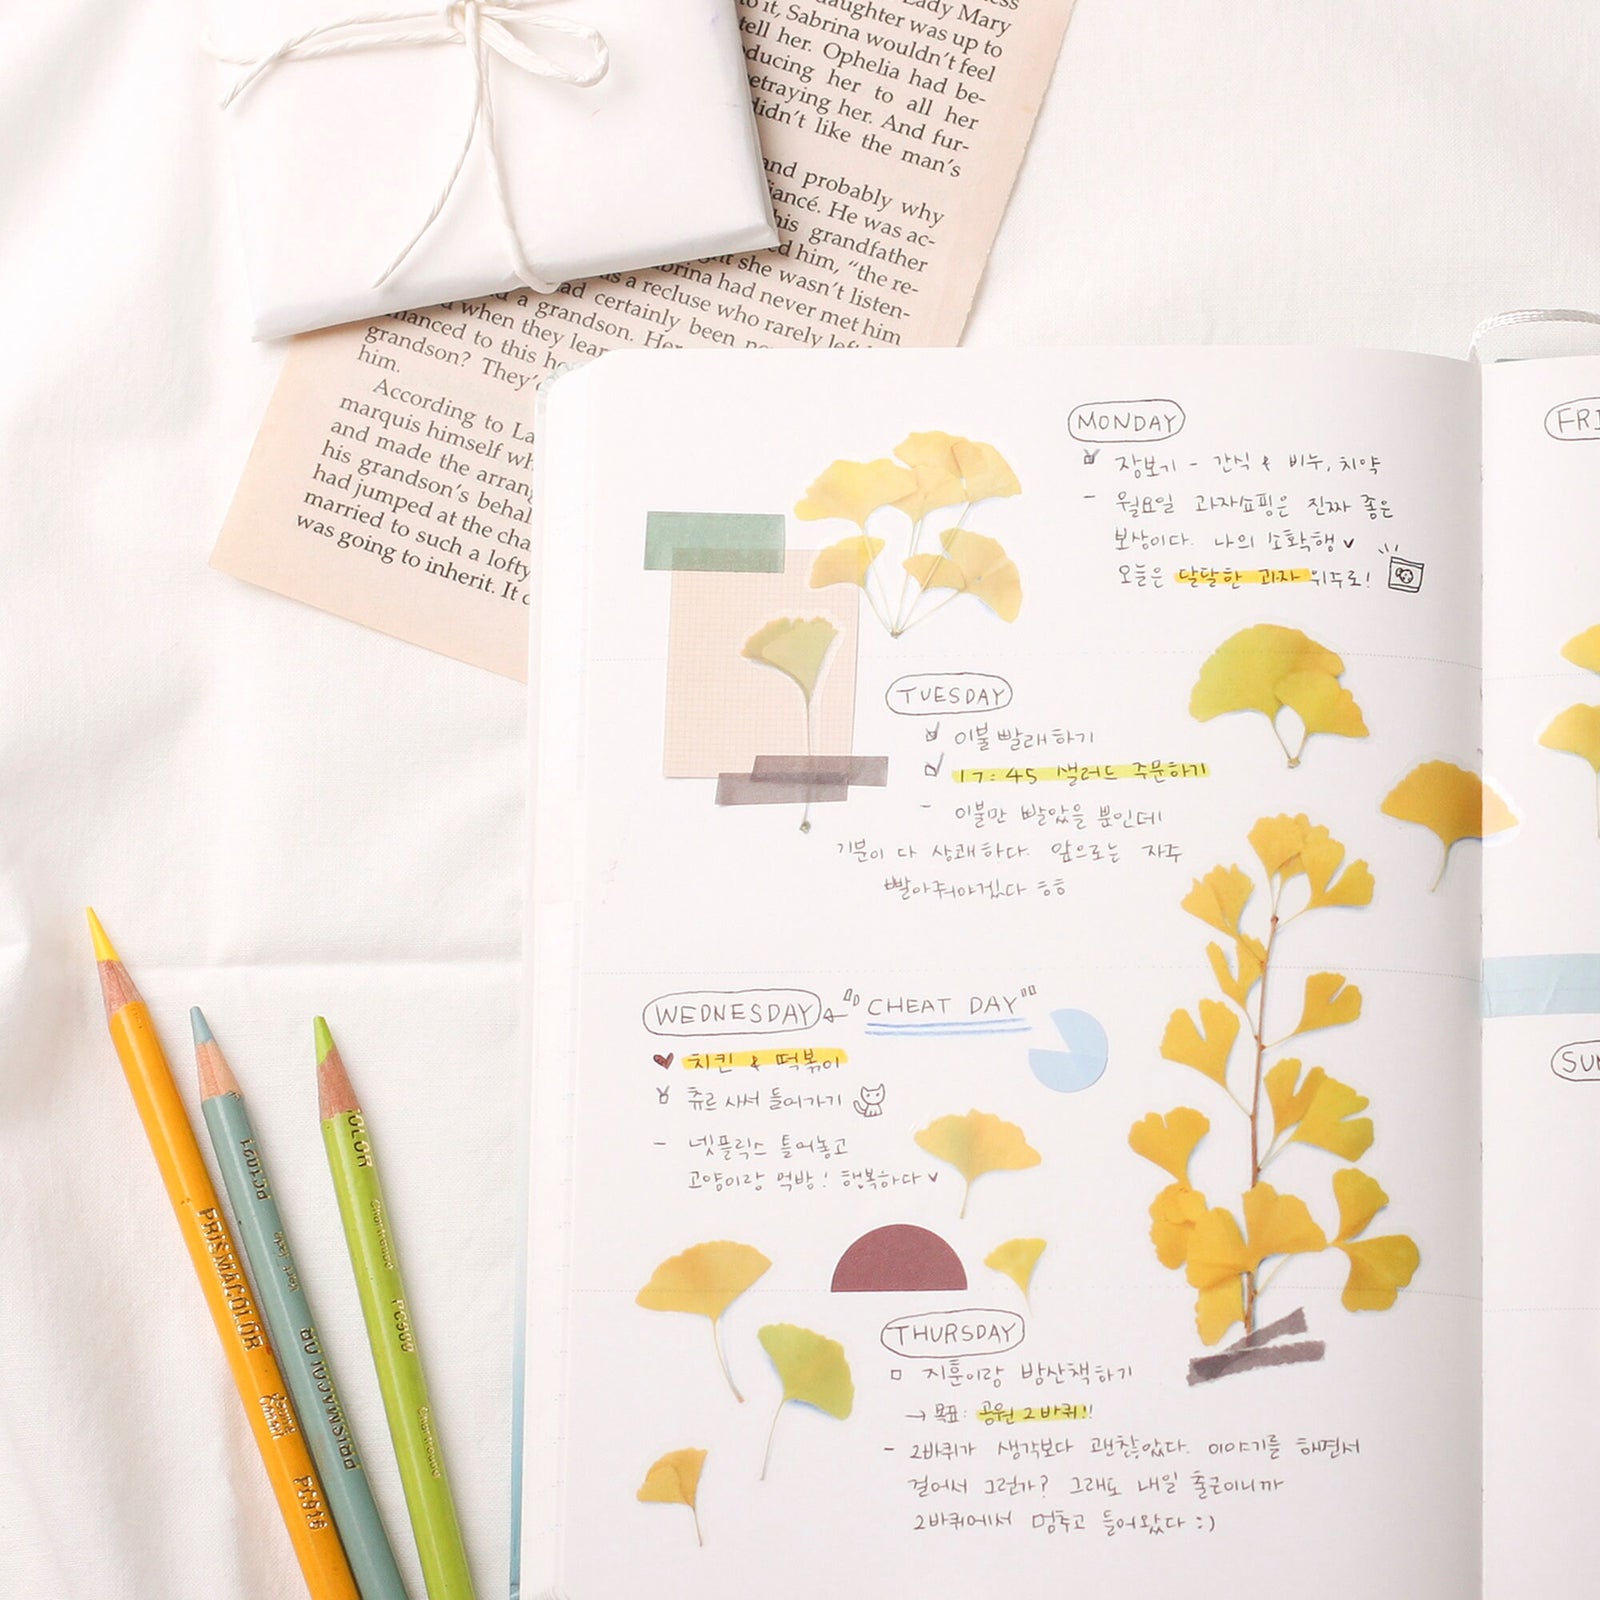 Lady Mary
daughter was up to
to it, Sabrina wouldn't feel
tell her. Ophelia had be-
ducing her to all her
etraying her. And fur-
didn't like the man's
and probably why
iancé. He was ac-
his grandfather
ed him, "the re-
she wasn't listen-
brina had never met him
as a recluse who rarely
had certainly been
a grandson. Her
when they lear
hanced to this
grandson? They'd
him.
According to La
marquis himself wh
and made the arran
his grandson's behal
had jumped at the cha
married to such a lofty
was going to inherit. It
MONDAY
장보기 - 간식 & 비누, 치약
- 월요일 과자쇼핑은 진짜 좋은
보상이다. 나의 소확행
오늘은 달달한 과자 위주로!
TUESDAY
이불 빨래하기
17:45 샐러드 주문하기
- 이불만 빨았을 뿐인데
기분이 다 상쾌하다. 앞으로는 자주
빨아줘야겠다 ㅎㅎ
WEDNESDAY ← "CHEAT DAY"
치킨 & 떡볶이
츄르 사서 들어가기
- 넷플릭스 틀어놓고
고양이랑 먹방! 행복하다
THURSDAY
지훈이랑 밤산책하기
→ 목표: 공원 2바퀴!!
- 2바퀴가 생각보다 괜찮았다. 이야기를 하면서
걸어서 그런가? 그래도 내일 출근이니까
2바퀴에서 멈추고 들어왔다 :)
FRI
SUN
PRISMACOLOR
PRISMACOLOR